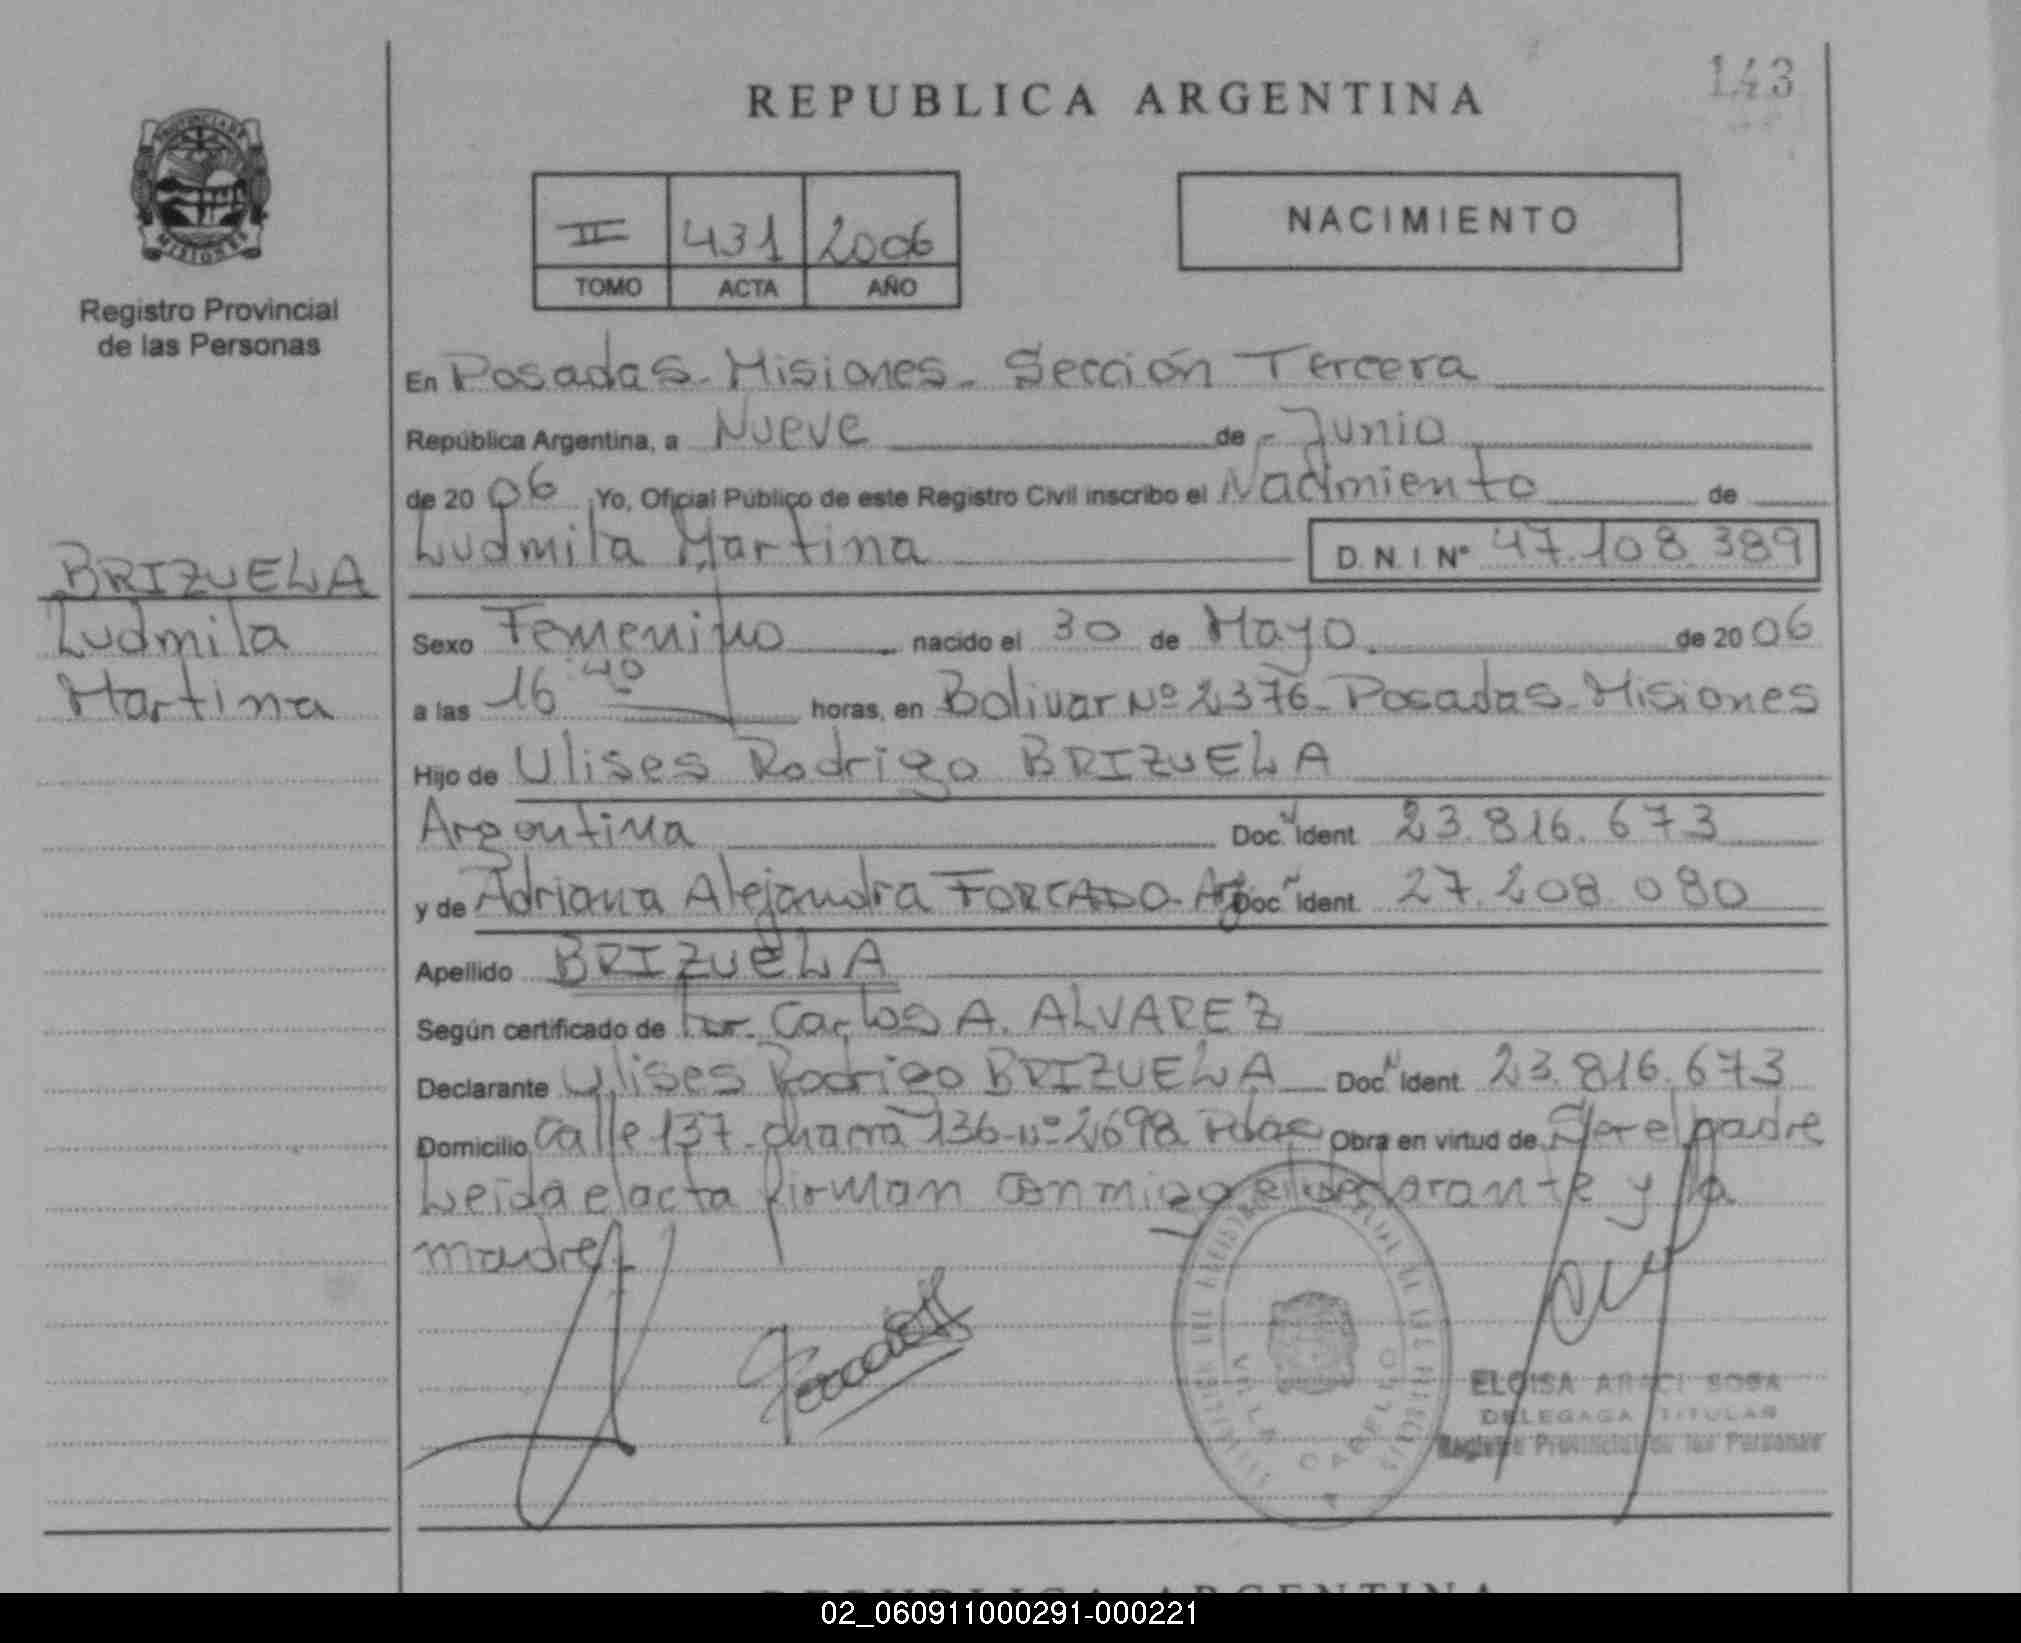 143
REPUBLICA ARGENTINA
PROVINCIA DE
MISIONES
Registro Provincial
de las Personas
II 431 2006
TOMO ACTA AÑO
NACIMIENTO
En Posadas - Misiones - Sección Tercera
República Argentina, a Nueve de Junio
de 20 06 Yo, Oficial Público de este Registro Civil inscribo el Nacimiento de
Ludmila Martina D.N.I. Nº 47.108.389
BRIZUELA
Ludmila
Martina
Sexo Femenino nacido el 30 de Mayo de 20 06
a las 16:40 horas, en Bolivar Nº 2376 - Posadas - Misiones
Hijo de Ulises Rodrigo BRIZUELA
Argentina Doc. Ident. 23.816.673
y de Adriana Alejandra FORCADO - Arg Doc. Ident. 27.208.080
Apellido BRIZUELA
Según certificado de Carlos A. ALVAREZ
Declarante Ulises Rodrigo BRIZUELA Doc. Ident. 23.816.673
Domicilio Calle 137 - chacra 136 - Nº 2698 Pdas Obra en virtud de Ser el padre
Leida el acta firman conmigo el declarante y la
madre
VILLA CABELLO
ELOISA ARACI SOSA
DELEGADA TITULAR
Registro Provincial de las Personas
REPUBLICA ARGENTINA
02_060911000291-000221